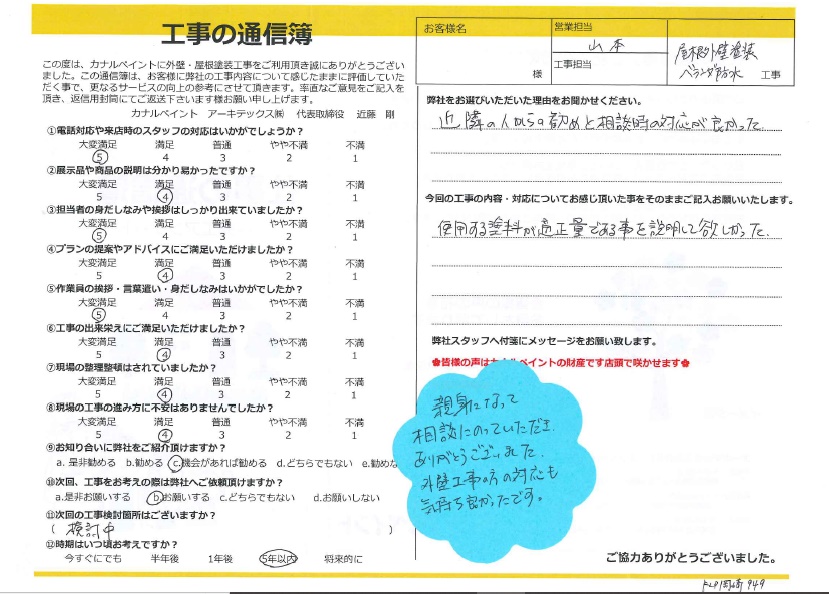 工事の通信簿
この度は、カナルペイントに外壁・屋根塗装工事をご利用頂き誠にありがとうござい
ました。この通信簿は、お客様に弊社の工事内容について感じたままに評価していた
だく事で、更なるサービスの向上の参考にさせて頂きます。率直なご意見をご記入を
頂き、返信用封筒にてご返送下さいます様お願い申し上げます。
カナルペイント アーキテックス㈱ 代表取締役 近藤 剛
①電話対応や来店時のスタッフの対応はいかがでしょうか？
大変満足 満足 普通 やや不満 不満
5 4 3 2 1
②展示品や商品の説明は分かり易かったですか？
大変満足 満足 普通 やや不満 不満
5 4 3 2 1
③担当者の身だしなみや挨拶はしっかり出来ていましたか？
大変満足 満足 普通 やや不満 不満
5 4 3 2 1
④プランの提案やアドバイスにご満足いただけましたか？
大変満足 満足 普通 やや不満 不満
5 4 3 2 1
⑤作業員の挨拶・言葉遣い・身だしなみはいかがでしたか？
大変満足 満足 普通 やや不満 不満
5 4 3 2 1
⑥工事の出来栄えにご満足いただけましたか？
大変満足 満足 普通 やや不満 不満
5 4 3 2 1
⑦現場の整理整頓はされていましたか？
大変満足 満足 普通 やや不満 不満
5 4 3 2 1
⑧現場の工事の進み方に不安はありませんでしたか？
大変満足 満足 普通 やや不満 不満
5 4 3 2 1
⑨お知り合いに弊社をご紹介頂けますか？
a. 是非勧める b.勧める c.機会があれば勧める d.どちらでもない e.勧めな
⑩次回、工事をお考えの際は弊社へご依頼頂けますか？
a.是非お願いする b.お願いする c.どちらでもない d.お願いしない
⑪次回の工事検討箇所はございますか？
( 検討中 )
⑫時期はいつ頃お考えですか？
今すぐにでも 半年後 1年後 5年以内 将来的に
お客様名
様
営業担当
山本
工事担当
屋根外壁塗装
ベランダ防水 工事
弊社をお選びいただいた理由をお聞かせください。
近隣の人からの勧めと相談時の対応が良かった
今回の工事の内容・対応についてお感じ頂いた事をそのままご記入お願いいたします。
使用する塗料が適正量である事を説明して欲しかった.
弊社スタッフへ付箋にメッセージをお願い致します。
✿皆様の声はカナルペイントの財産です店頭で咲かせます✿
親身になって
相談にのっていただき.
ありがとうございました.
外壁工事の方の対応も
気持ち良かったです。
ご協力ありがとうございました。